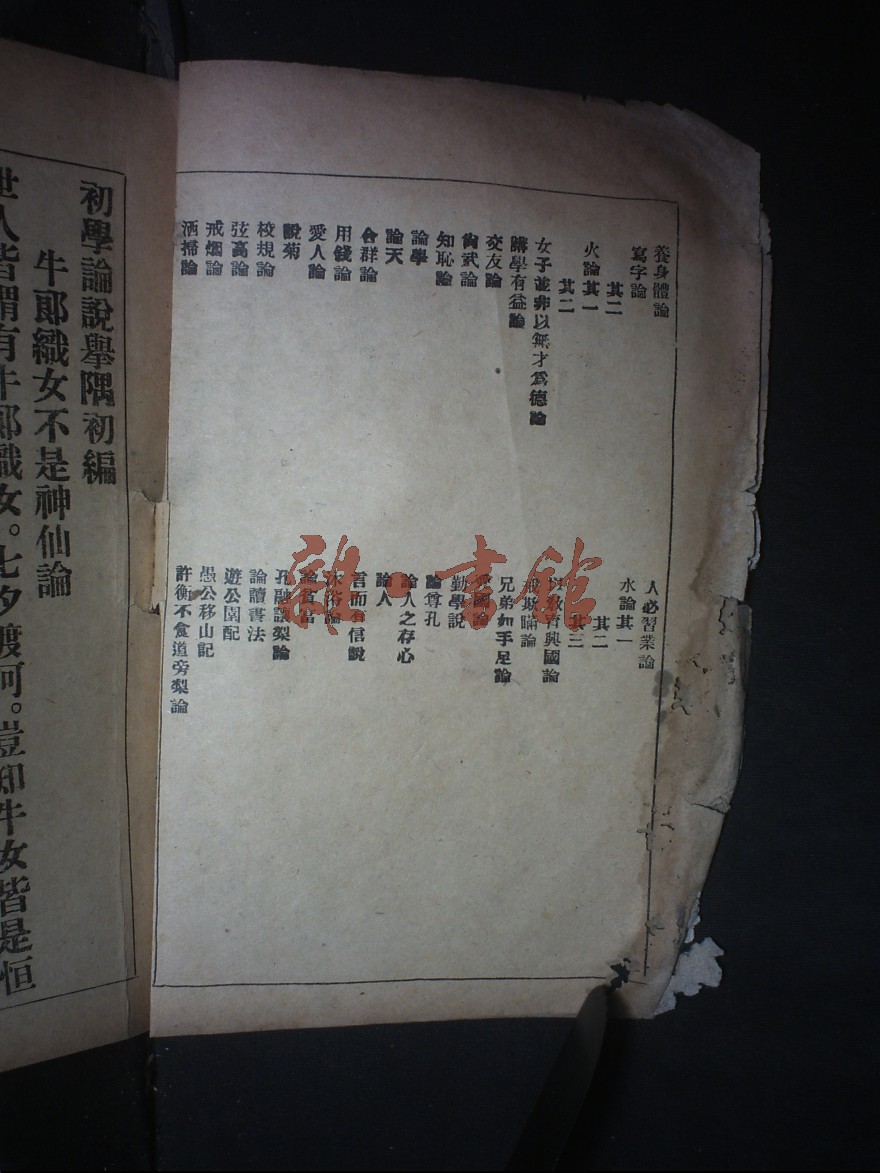 養身體論
寫字論
其二
火論其一
其二
女子並非以無才為德論
講學有益論
交友論
尙武論
知恥論
論學
論天
合群論
用錢論
愛人論
說菊
校規論
弦高論
戒烟論
洒掃論
人必習業論
水論其一
其二
其三
教育興國論
欺瞞論
兄弟如手足論
愛國論
勤學說
論尊孔
論人之存心
論人
言而有信說
沐浴論
論貧富
孔融讓梨論
論讀書法
遊公園配
愚公移山記
許衡不食道旁梨論
雜·書館
初學論說擧隅初編
牛郞織女不是神仙論
世人皆謂有牛郞織女。七夕渡河。豈知牛女皆是恒